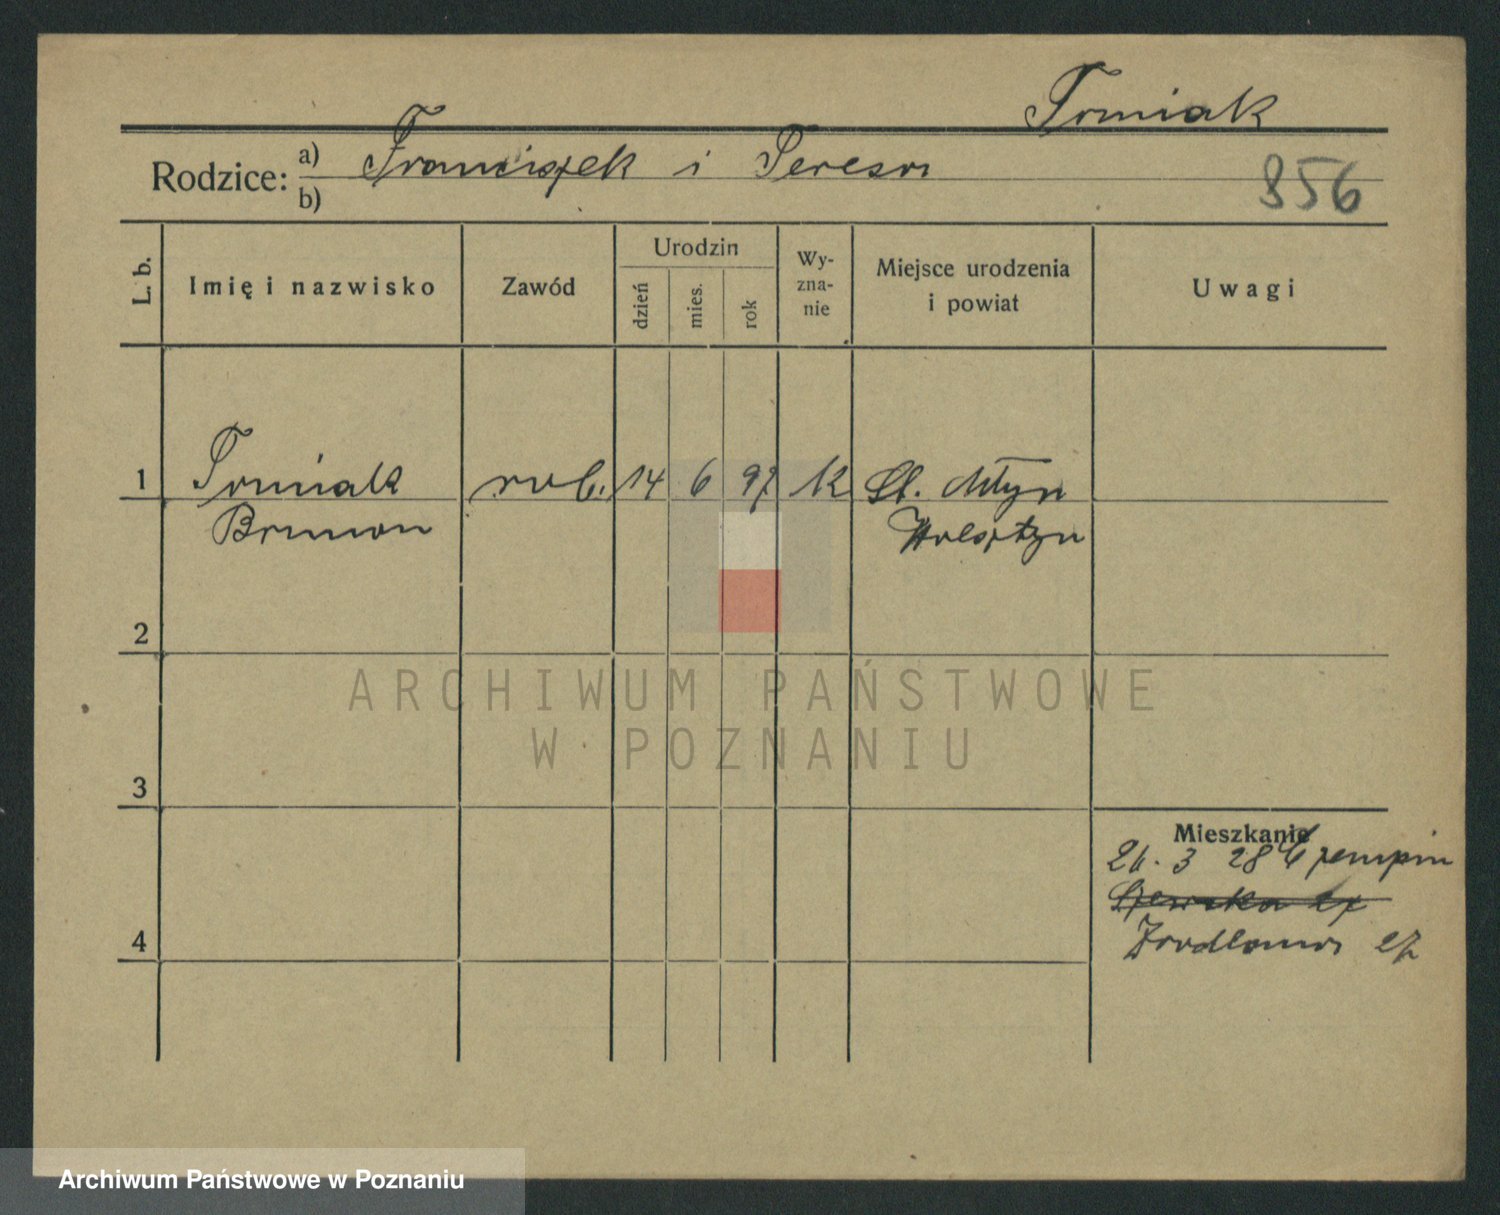 Tomiak
Rodzice: a) Franciszek i Teresa
b)
856
L. b.
Imię i nazwisko
Zawód
Urodzin
dzień
mies.
rok
Wy-
zna-
nie
Miejsce urodzenia
i powiat
Uwagi
1 Tomiak rob. 14 6 97 k St. Młyn
Brunon Wolsztyn
2
3
4
Mieszkanie
21. 3 28 Czempin
Szewska
Źródlana 27
ARCHIWUM PAŃSTWOWE
W POZNANIU
Archiwum Państwowe w Poznaniu